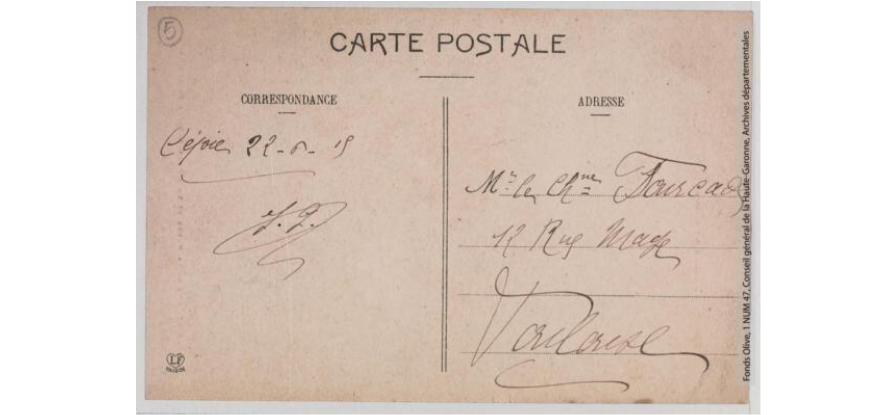 5
CARTE POSTALE
CORRESPONDANCE
22-6-15
J. F.
ADRESSE
Mr le Chne Fourcade
12 Rue Mage
Toulouse
Fonds Olive, 1 NUM 47, Conseil général de la Haute-Garonne, Archives départementales